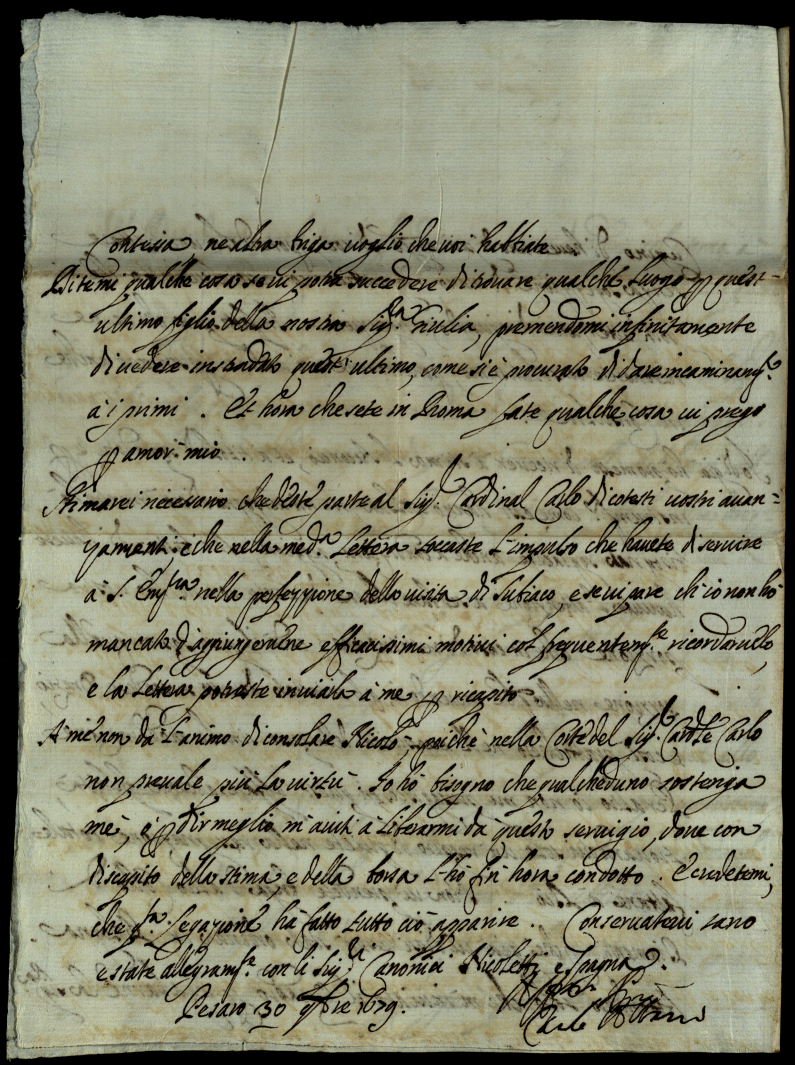 Contessa ne altra briga voglio che voi habbiate
Ditemi qualche cosa se vi potrà succedere di trovare qualche luogo p quest-
ultimo figlio della nostra Sig.ra Giulia, premendomi infinitamente
di vedere instradato quest'ultimo, come si è procurato di dare incaminam.to
a i primi. Et hora che sete in Roma fate qualche cosa vi prego
p amor mio.
Stimarei necessario che deste parte al Sig.r Cardinal Carlo di cotesti vostri avan=
zamenti e che nella med.a lettera toccaste l'impulso che havete di servire
a S. Em.za nella perfezzione della visita di Subiaco, e se vi pare ch'io non hò
mancato d'aggiungervene efficacissimi motivi col frequentem.te ricordarvelo,
e la lettera potreste inviarla à me p ricapito
A mè non dà l'animo di consolare Nicolò poiche nella Corte del Sig.r Card.le Carlo
non prevale più la virtù. Io hò bisogno che qualcheduno sostenga
mè, ò p dir meglio m'aiuti à liberarmi da questo servigio, dove con
discapito della stima, e della borsa l'hò fin hora condotto. E credetemi,
che q.ta legazione hà fatto tutto ciò apparire. Conservatevi sano
e state allegram.te con li Sig.ri Canonici Nicoletti, e Spagna.
Pesaro 30 9bre 1679.
Carlo